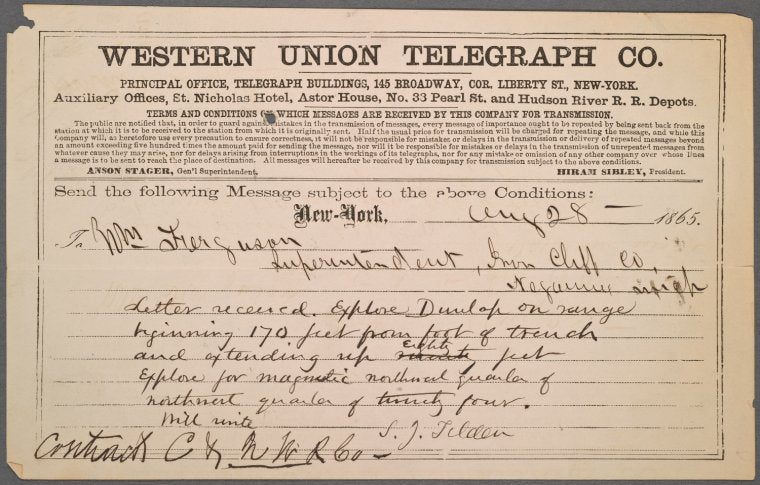 WESTERN UNION TELEGRAPH CO.
PRINCIPAL OFFICE, TELEGRAPH BUILDINGS, 145 BROADWAY, COR. LIBERTY ST., NEW-YORK.
Auxiliary Offices, St. Nicholas Hotel, Astor House, No. 33 Pearl St. and Hudson River R. R. Depots.
TERMS AND CONDITIONS ON WHICH MESSAGES ARE RECEIVED BY THIS COMPANY FOR TRANSMISSION.
The public are notified that, in order to guard against mistakes in the transmission of messages, every message of importance ought to be repeated by being sent back from the
station at which it is to be received to the station from which it is originally sent. Half the usual price for transmission will be charged for repeating the message, and while this
Company will, as heretofore use every precaution to ensure correctness, it will not be responsible for mistakes or delays in the transmission or delivery of repeated messages beyond
an amount exceeding five hundred times the amount paid for sending the message, nor will it be responsible for mistakes or delays in the transmission of unrepeated messages from
whatever cause they may aries, nor for delays arising from interruptions in the workings of its telegraphs, nor for any mistake or omission of any other company over whose lines
a message is to be sent to reach the place of destination. All messages will hereafter be received by this company for transmission subject to the above conditions.
ANSON STAGER, Gen'l Superintendent. HIRAM SIBLEY, President.
Send the following Message subject to the above Conditions:
New-York, Aug 28 1865.
To Wm Ferguson
Superintendent, Iron Cliff Co,
Negaunee Mich
Letter received. Explore Dunlap on range
beginning 170 feet from foot of trench
Eighty
and extending up feet
Explore for magnetic northwest quarter of
northwest quarter of twenty four.
Will write
S. J. Tilden
Contract C & N W R Co